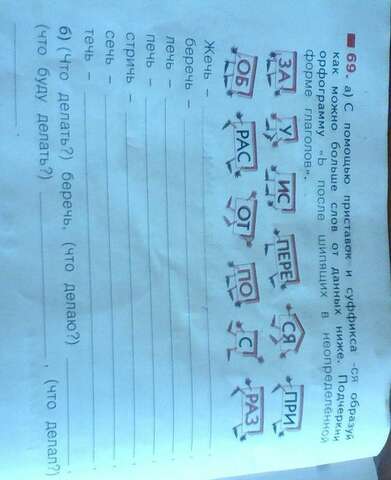 69. а) С помощью приставок и суффикса -ся образуй
как можно больше слов от данных ниже. Подчеркни
орфограмму «Ь после шипящих в неопределённой
форме глаголов».
ЗА У ИС ПЕРЕ СЯ ПРИ
ОБ РАС ОТ ПО С РАЗ
Жечь –
беречь –
лечь –
печь –
стричь –
сечь –
течь –
б) (Что делать?) беречь, (что делаю?) , (что делал?)
(что буду делать?)